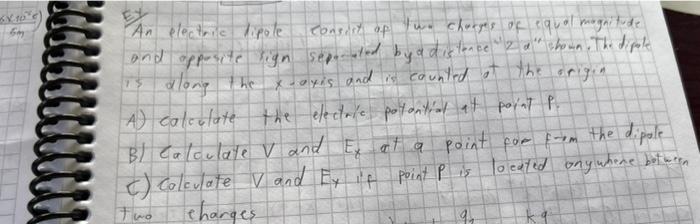 6x10⁻⁶c)
5m
Ex
An electric dipole consist of two charges of equal magnitude
and opposite sign separated by a distance "2a" shown. The dipole
is along the x-axis and is counted at the origin
A) calculate the electric potantial at point P.
B) Calculate V and Ex at a point far from the dipole
C) Colculate V and Ex if point P is located anywhere between
two charges
q₂ kq